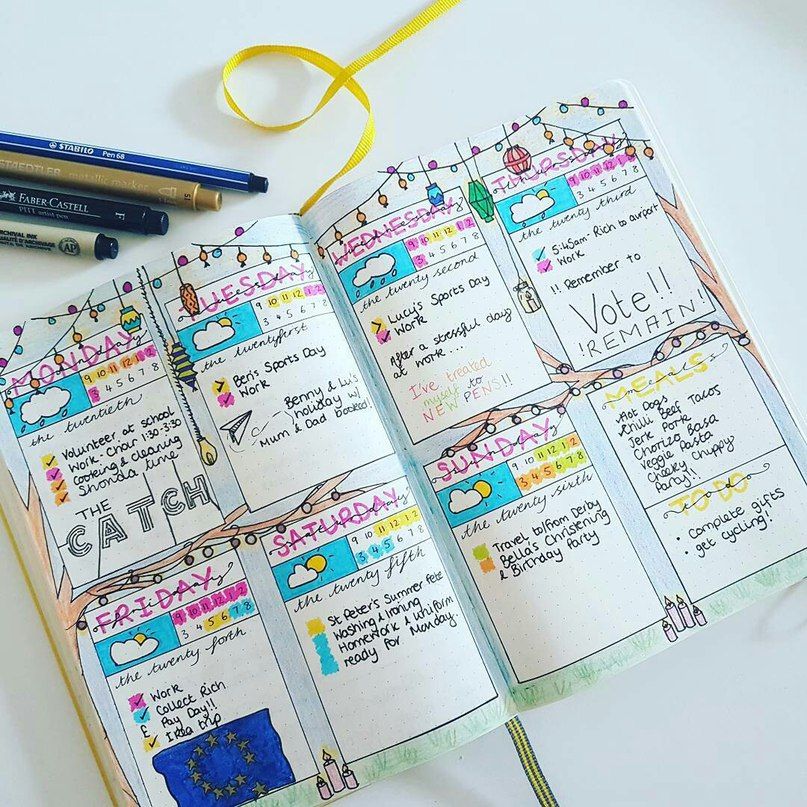 STABILO Pen 68
STAEDTLER metallic marker
FABER-CASTELL
PITT artist pen F
ARCHIVAL INK
MONDAY
9 10 11 12 1 2
3 4 5 6 7 8
the twentieth
Volunteer at school
Work - Chair 1:30-3:30
Cooking & cleaning
Shonda time
THE
CATCH
TUESDAY
9 10 11 12 1 2
3 4 5 6 7 8
the twentyfirst
Ben's Sports Day
Work
Benny & Lu's
holiday w/
Mum & Dad booked!
WEDNESDAY
9 10 11 12 1 2
3 4 5 6 7 8
the twenty second
Lucy's Sports Day
Work
After a stressful day
at work...
I've treated
myself to
NEW PENS!!
THURSDAY
9 10 11 12 1 2
3 4 5 6 7 8
the twenty third
5:45am - Rich to airport
Work
!! Remember to
Vote!!
!REMAIN!
FRIDAY
9 10 11 12 1 2
3 4 5 6 7 8
the twenty forth
Work
Collect Rich
£ Pay Day!!
Ikea trip
SATURDAY
9 10 11 12 1 2
3 4 5 6 7 8
the twenty fifth
St Peter's Summer Fete
Washing & Ironing
Homework & Uniform
ready for Monday
SUNDAY
9 10 11 12 1 2
3 4 5 6 7 8
the twenty sixth
Travel to/from Derby
Bella's Christening
& Birthday Party
MEALS
Hot Dogs
Chilli Beef Tacos
Jerk Pork
Chorizo Basa
Veggie Pasta
Cheeky Chuppy
Party!!
TO DO
• complete gifts
• get cycling!!